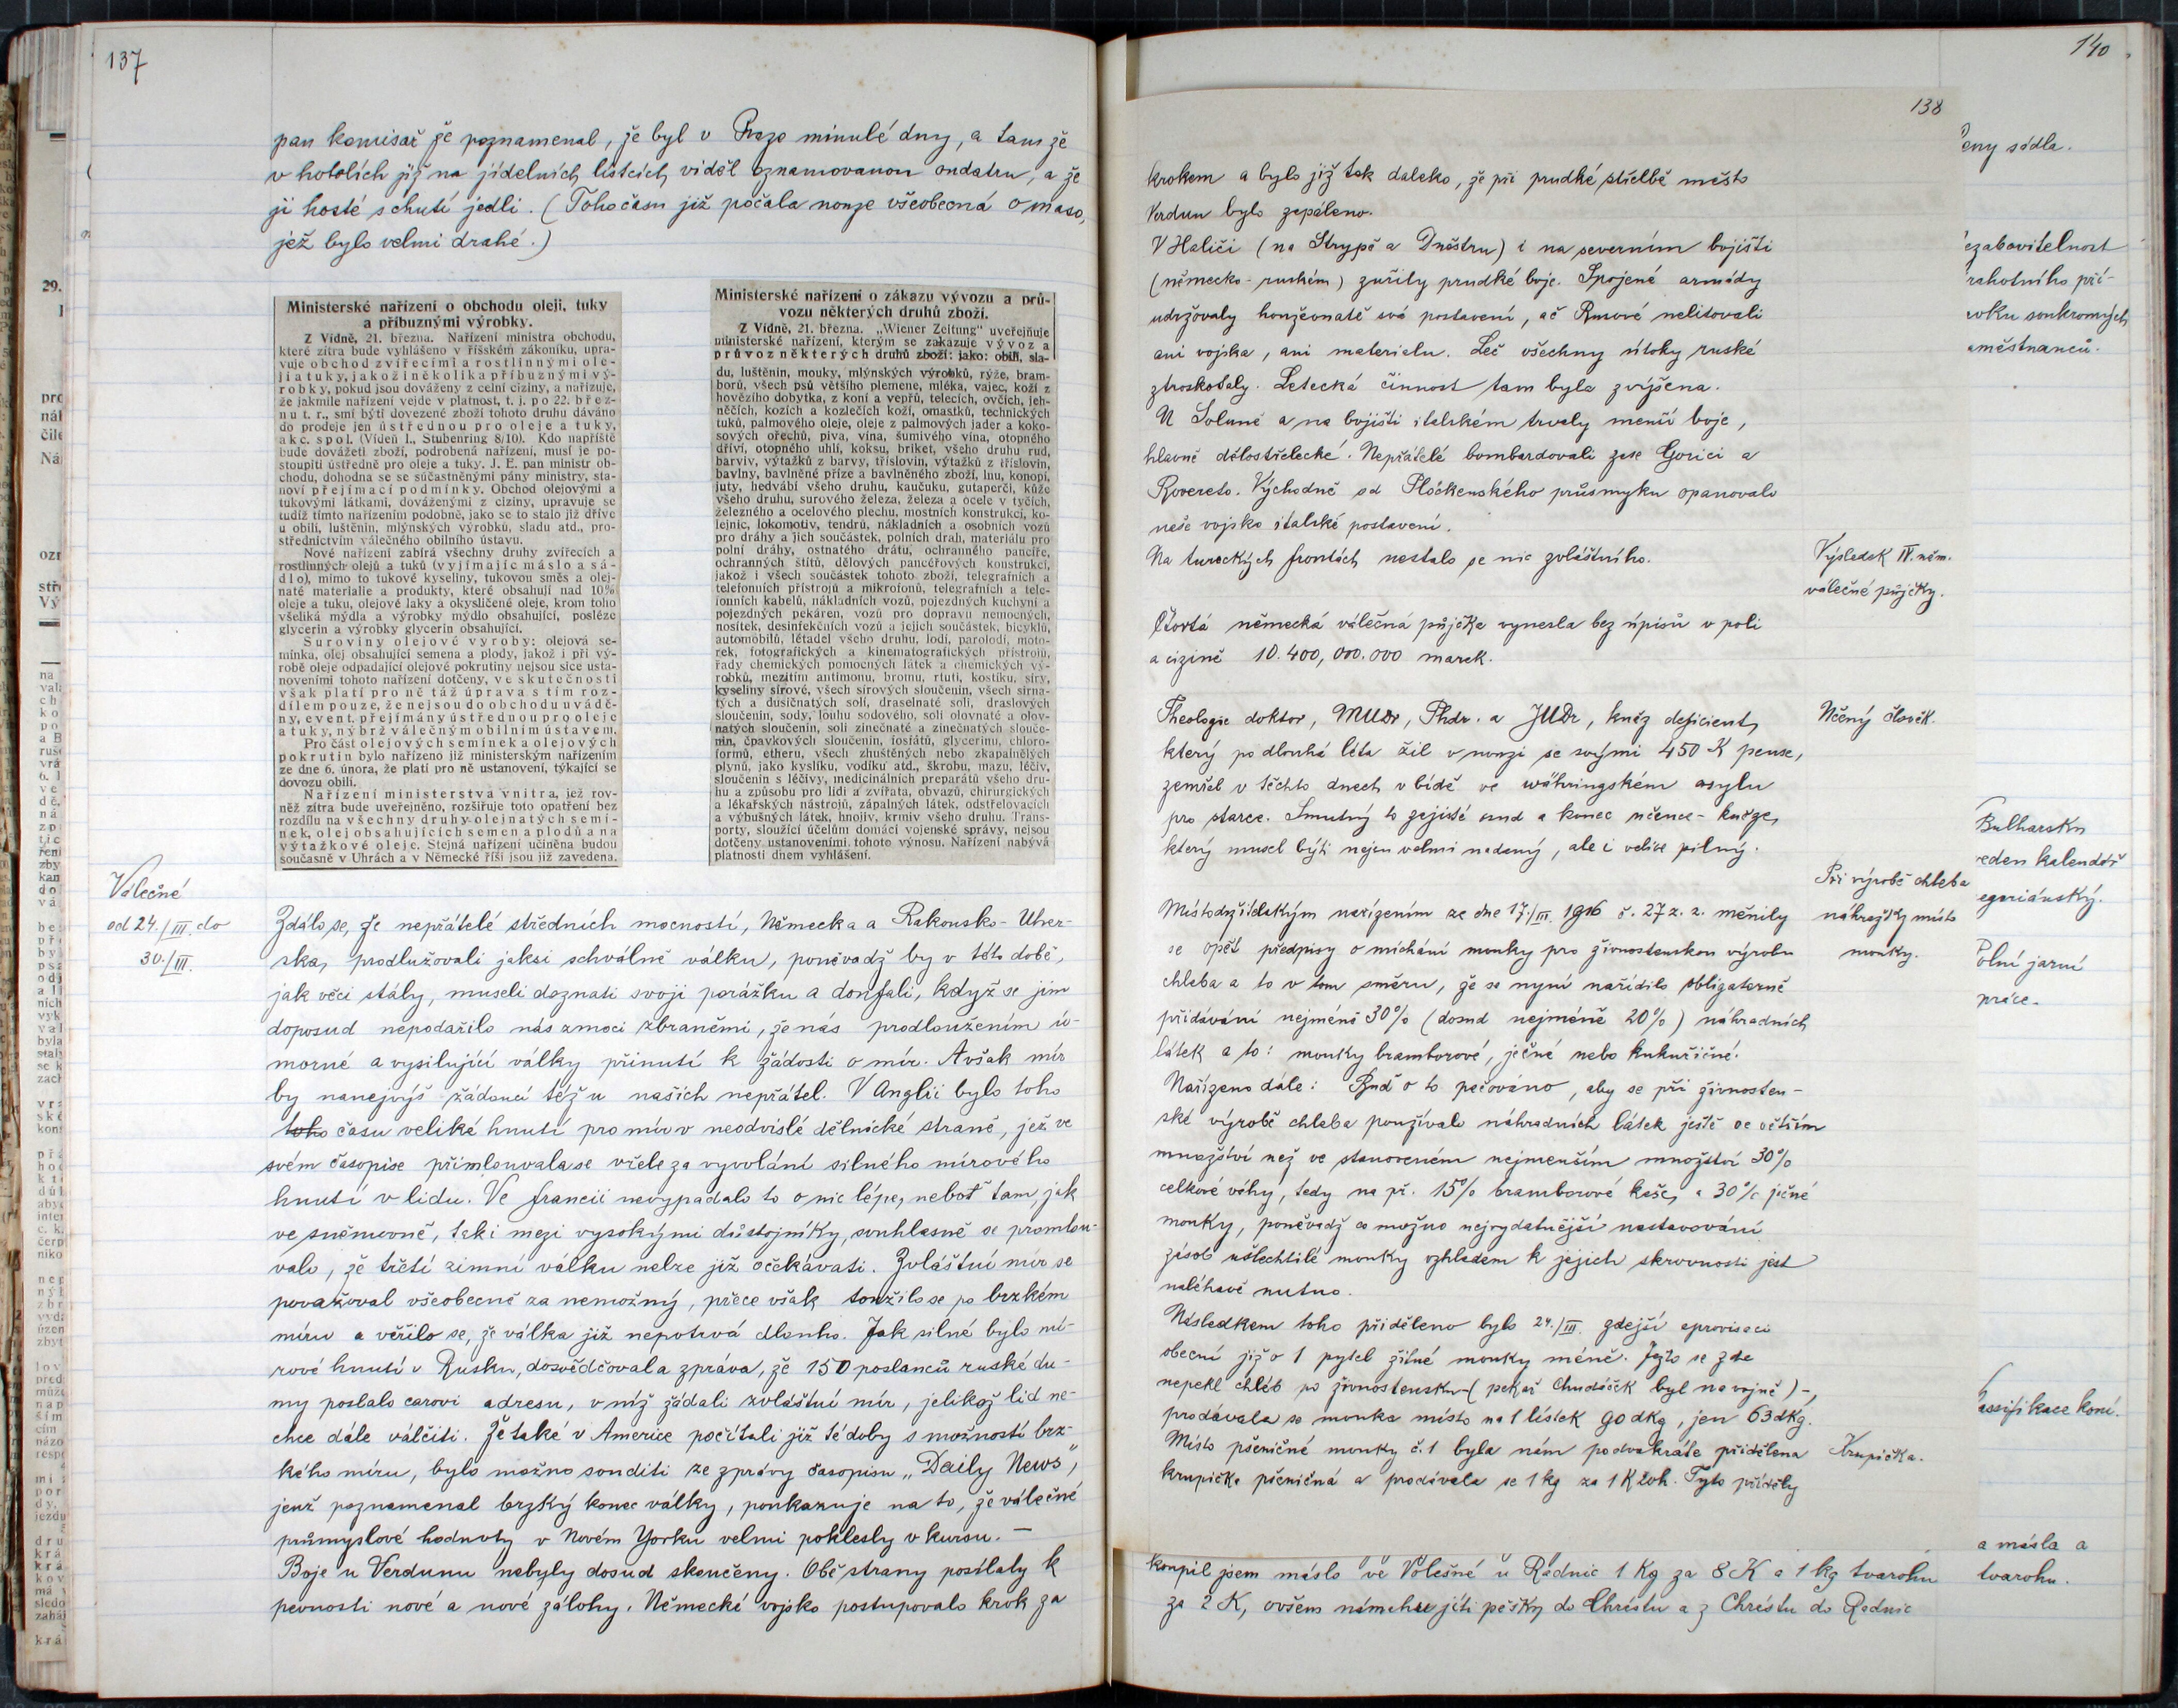 137
pan komisař že poznamenal, že byl v Praze minulé dny, a tam že
v hotelích již na jídelních lístcích viděl oznamovanou ondatru, a že
ji hosté s chutí jedli. (Tohočasu již počala nouze všeobecná o maso,
jež bylo velmi drahé.)
Ministerské nařízení o obchodu oleji, tuky
a příbuznými výrobky.
Z Vídně, 21. března. Nařízení ministra obchodu,
které zítra bude vyhlášeno v říšském zákoníku, upra-
vuje obchod zvířecími a rostlinnými ole-
ji a tuky, jakož i několika příbuznými vý-
robky, pokud jsou dováženy z celní ciziny, a nařizuje,
že jakmile nařízení vejde v platnost, t. j. po 22. břez-
nu t. r., smí býti dovezené zboží tohoto druhu dáváno
do prodeje jen ústřednou pro oleje a tuky,
akc. spol. (Vídeň I., Stubenring 8/10). Kdo napříště
bude dovážeti zboží, podrobená nařízení, musí je po-
stoupiti ústředně pro oleje a tuky. J. E. pan ministr ob-
chodu, dohodna se se súčastněnými pány ministry, sta-
noví přejímací podmínky. Obchod olejovými a
tukovými látkami, dováženými z ciziny, upravuje se
tudíž tímto nařízením podobně, jako se to stalo již dříve
u obilí, luštěnin, mlýnských výrobků, sladu atd., pro-
střednictvím válečného obilního ústavu.
Nové nařízení zabírá všechny druhy zvířecích a
rostlinných olejů a tuků (vyjímajíc máslo a sá-
dlo), mimo to tukové kyseliny, tukovou směs a olej-
naté materialie a produkty, které obsahují nad 10%
oleje a tuku, olejové laky a okysličené oleje, krom toho
všeliká mýdla a výrobky mýdlo obsahující, posléze
glycerin a výrobky glycerin obsahující.
Suroviny olejové výroby: olejová se-
mínka, olej obsahující semena a plody, jakož i při vý-
robě oleje odpadající olejové pokrutiny nejsou sice usta-
noveními tohoto nařízení dotčeny, ve skutečnosti
však platí pro ně táž úprava s tím roz-
dílem pouze, že nejsou do obchodu uvádě-
ny, event. přejímány ústřednou pro oleje
a tuky, nýbrž válečným obilním ústavem.
Pro část olejových semínek a olejových
pokrutin bylo nařízeno již ministerským nařízením
ze dne 6. února, že platí pro ně ustanovení, týkající se
dovozu obilí.
Nařízení ministerstva vnitra, jež rov-
něž zítra bude uveřejněno, rozšiřuje toto opatření bez
rozdílu na všechny druhy olejnatých semí-
nek, olej obsahujících semen a plodů a na
výtažkové oleje. Stejná nařízení učiněna budou
současně v Uhrách a v Německé říši jsou již zavedena.
Ministerské nařízení o zákazu vývozu a prů-
vozu některých druhů zboží.
Z Vídně, 21. března. „Wiener Zeitung“ uveřejňuje
ministerské nařízení, kterým se zakazuje vývoz a
průvoz některých druhů zboží: jako: obilí, sla-
du, luštěnin, mouky, mlýnských výrobků, rýže, bram-
borů, všech psů většího plemene, mléka, vajec, koží z
hovězího dobytka, z koní a vepřů, telecích, ovčích, jeh-
něčích, kozích a kozlečích koží, omastků, technických
tuků, palmového oleje, oleje z palmových jader a koko-
sových ořechů, piva, vína, šumivého vína, otopného
dříví, otopného uhlí, koksu, briket, všeho druhu rud,
barviv, výtažků z barvy, tříslovin, výtažků z tříslovin,
bavlny, bavlněné příze a bavlněného zboží, lnu, konopí,
juty, hedvábí všeho druhu, kaučuku, gutaperči, kůže
všeho druhu, surového železa, železa a ocele v tyčích,
železného a ocelového plechu, mostních konstrukcí, ko-
lejnic, lokomotiv, tendrů, nákladních a osobních vozů
pro dráhy a jich součástek, polních drah, materiálu pro
polní dráhy, ostnatého drátu, ochranného pancíře,
ochranných štítů, dělových pancéřových konstrukcí,
jakož i všech součástek tohoto zboží, telegrafních a
telefonních přístrojů a mikrofonů, telegrafních a tele-
fonních kabelů, nákladních vozů, pojezdných kuchyní a
pojezdných pekáren, vozů pro dopravu nemocných,
nosítek, desinfekčních vozů a jejich součástek, bicyklů,
automobilů, létadel všeho druhu, lodí, parolodí, moto-
rek, fotografických a kinematografických přístrojů,
řady chemických pomocných látek a chemických vý-
robků, mezitím antimonu, bromu, rtuti, kostíku, síry,
kyseliny sírové, všech sírových sloučenin, všech sírna-
tých a dusičnatých solí, draselnaté soli, draslových
sloučenin, sody, louhu sodového, soli olovnaté a olov-
natých sloučenin, soli zinečnaté a zinečnatých slouče-
nin, čpavkových sloučenin, fosfátů, glycerinu, chloro-
formů, etheru, všech zhuštěných nebo zkapalnělých
plynů, jako kyslíku, vodíku atd., škrobu, mazu, léčiv,
sloučenin s léčivy, medicinálních preparátů všeho dru-
hu a způsobu pro lidi a zvířata, obvazů, chirurgických
a lékařských nástrojů, zápalných látek, odstřelovacích
a výbušných látek, hnojiv, krmiv všeho druhu. Trans-
porty, sloužící účelům domácí vojenské správy, nejsou
dotčeny ustanoveními tohoto výnosu. Nařízení nabývá
platnosti dnem vyhlášení.
Válečné
od 24./III. do
30./III.
Zdálo se, že nepřátelé středních mocností, Německa a Rakousko-Uher-
ska, prodlužovali jaksi schválně válku, poněvadž by v této době,
jak věci stály, museli doznati svoji porážku a doufali, když se jim
doposud nepodařilo nás zmoci zbraněmi, že nás prodloužením ú-
morné a vysilující války přinutí k žádosti o mír. Avšak mír
by nanejvýš žádoucí též u našich nepřátel. V Anglii bylo toho
toho času veliké hnutí pro mír v neodvislé dělnické straně, jež ve
svém časopise přimlouvala se vřele za vyvolání silného mírového
hnutí v lidu. Ve Francii nevypadalo to o nic lépe, neboť tam, jak
ve sněmovně, tak i mezi vysokými důstojníky, souhlasně se promlou-
valo, že třetí zimní válku nelze již očekávati. Zvláštní mír se
považoval všeobecně za nemožný, přece však toužilo se po brzkém
míru a věřilo se, že válka již nepotrvá dlouho. Jak silné bylo mí-
rové hnutí v Rusku, dosvědčovala zpráva, že 150 poslanců ruské du-
my poslalo carovi adresu, v níž žádali zvláštní mír, jelikož lid ne-
chce dále válčiti. Že také v Americe počítali již té doby s možností brz-
kého míru, bylo možno souditi ze zprávy časopisu „Daily News“,
jenž poznamenal brzký konec války, poukazuje na to, že válečné
průmyslové hodnoty v Novém Yorku velmi poklesly v kursu. —
Boje u Verdunu nebyly dosud skončeny. Obě strany posílaly k
pevnosti nové a nové zálohy. Německé vojsko postupovalo krok za
140
138
krokem a bylo již tak daleko, že při prudké střelbě město
Verdun bylo zapáleno.
V Haliči (na Strypě a Dněstru) i na severním bojišti
(německo-ruském) zuřily prudké boje. Spojené armády
udržovaly houževnatě svá postavení, ač Rusové nelitovali
ani vojska, ani materielu. Leč všechny útoky ruské
ztroskotaly. Letecká činnost tam byla zvýšena.
U Soluně a na bojišti italském trvaly menší boje,
hlavně dělostřelecké. Nepřátelé bombardovali zase Gorici a
Rovereto. Východně od Plöckenského průsmyku opanovalo
naše vojsko italské postavení.
Na tureckých frontách nestalo se nic zvláštního.
Výsledek IV. něm.
válečné půjčky.
Čtvrtá německá válečná půjčka vynesla bez úpisů v poli
a cizině 10.400,000.000 marek.
Theologie doktor, MUDr, Phdr. a JUDr, kněz deficient,
který po dlouhá léta žil v nouzi se svými 450 K pense,
zemřel v těchto dnech v bídě ve währingském asylu
pro starce. Smutný to zajisté osud a konec učence-kněze,
který musel býti nejen velmi nadaný, ale i velice pilný.
Učený člověk.
Místodržitelským nařízením ze dne 17./III. 1916 č. 27 z. z. měnily
se opět předpisy o míchání mouky pro živnostenskou výrobu
chleba a to v tom směru, že se nyní nařídilo obligatorně
přidávání nejméně 30% (dosud nejméně 20%) náhradních
látek a to: mouky bramborové, ječné nebo kukuřičné.
Nařízeno dále: Budiž o to pečováno, aby se při živnosten-
ské výrobě chleba používalo náhradních látek ještě ve větším
množství než ve stanoveném nejmenším množství 30%
celkové váhy, tedy na př. 15% bramborové kaše, a 30% ječné
mouky, poněvadž co možno nejvydatnější nastavování
zásob ušlechtilé mouky vzhledem k jejich skrovnosti jest
naléhavě nutno.
Při výrobě chleba
náhražky místo
mouky.
Následkem toho přiděleno bylo 24./III. zdejší aprovisaci
obecní již o 1 pytel žitné mouky méně. Ježto se zde
nepekl chléb po živnostensku – (pekař Chudáček byl na vojně) –,
prodávala se mouka místo na 1 lístek 90 dkg, jen 63 dkg.
Místo pšeničné mouky č. 1 byla nám podvakráte přidělena
krupička pšeničná a prodávala se 1 kg za 1 K 20 h. Tyto příděly
Krupička.
koupil jsem máslo ve Volešné u Radnic 1 Kg za 8 K a 1 kg tvarohu
za 2 K, ovšem jíti pěšky do Chrástu a z Chrástu do Radnic
eny sádla.
ezabavitelnost
rahotního pří-
vku soukromých
aměstnanců.
Bulharsku
veden kalendář
egoriánský.
Polní jarní
práce.
lassifikace koní.
a másla a
tvarohu.